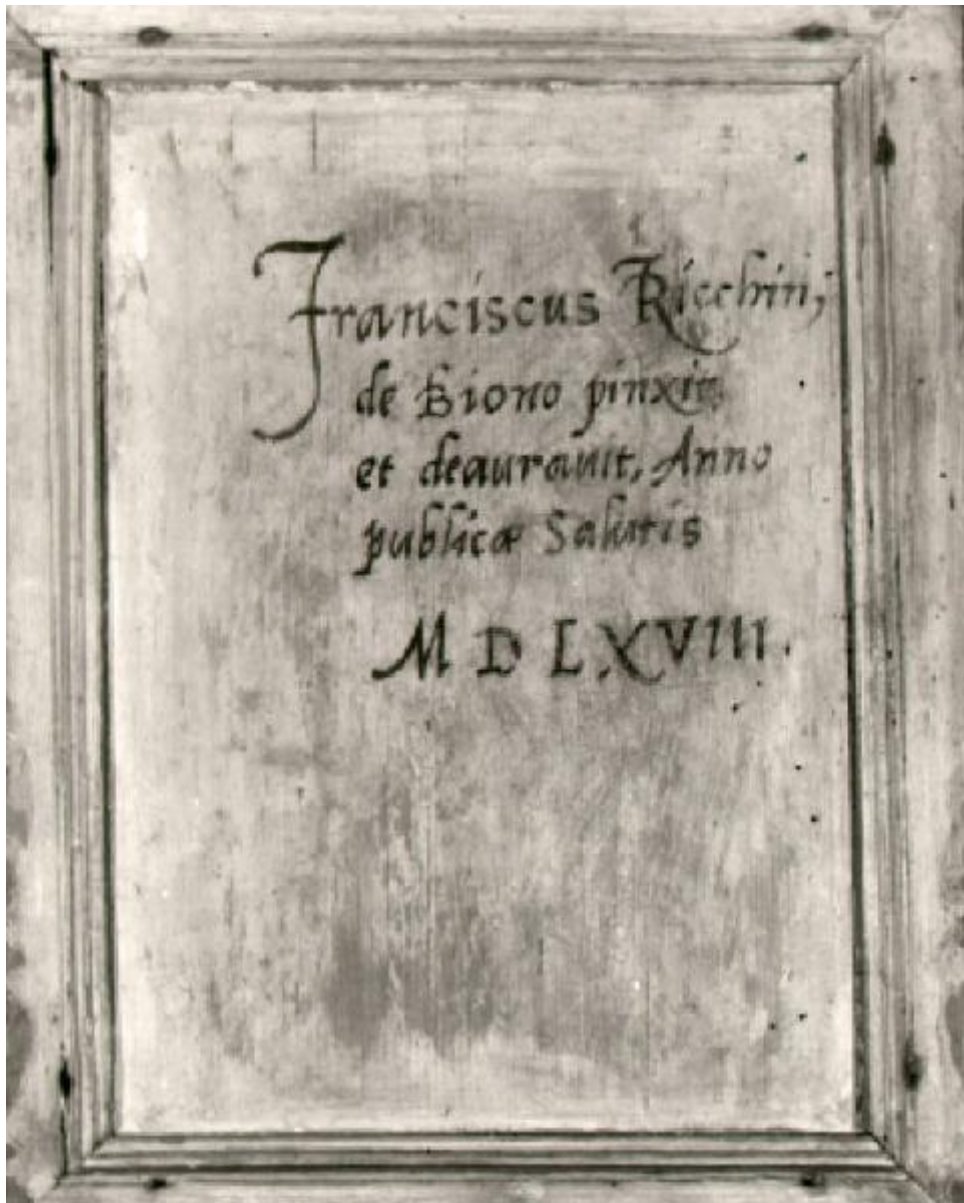 Franciscus Ricchini,
de Biono pinxit,
et deaurauit, Anno
publicæ Salutis
MDLXVIII.